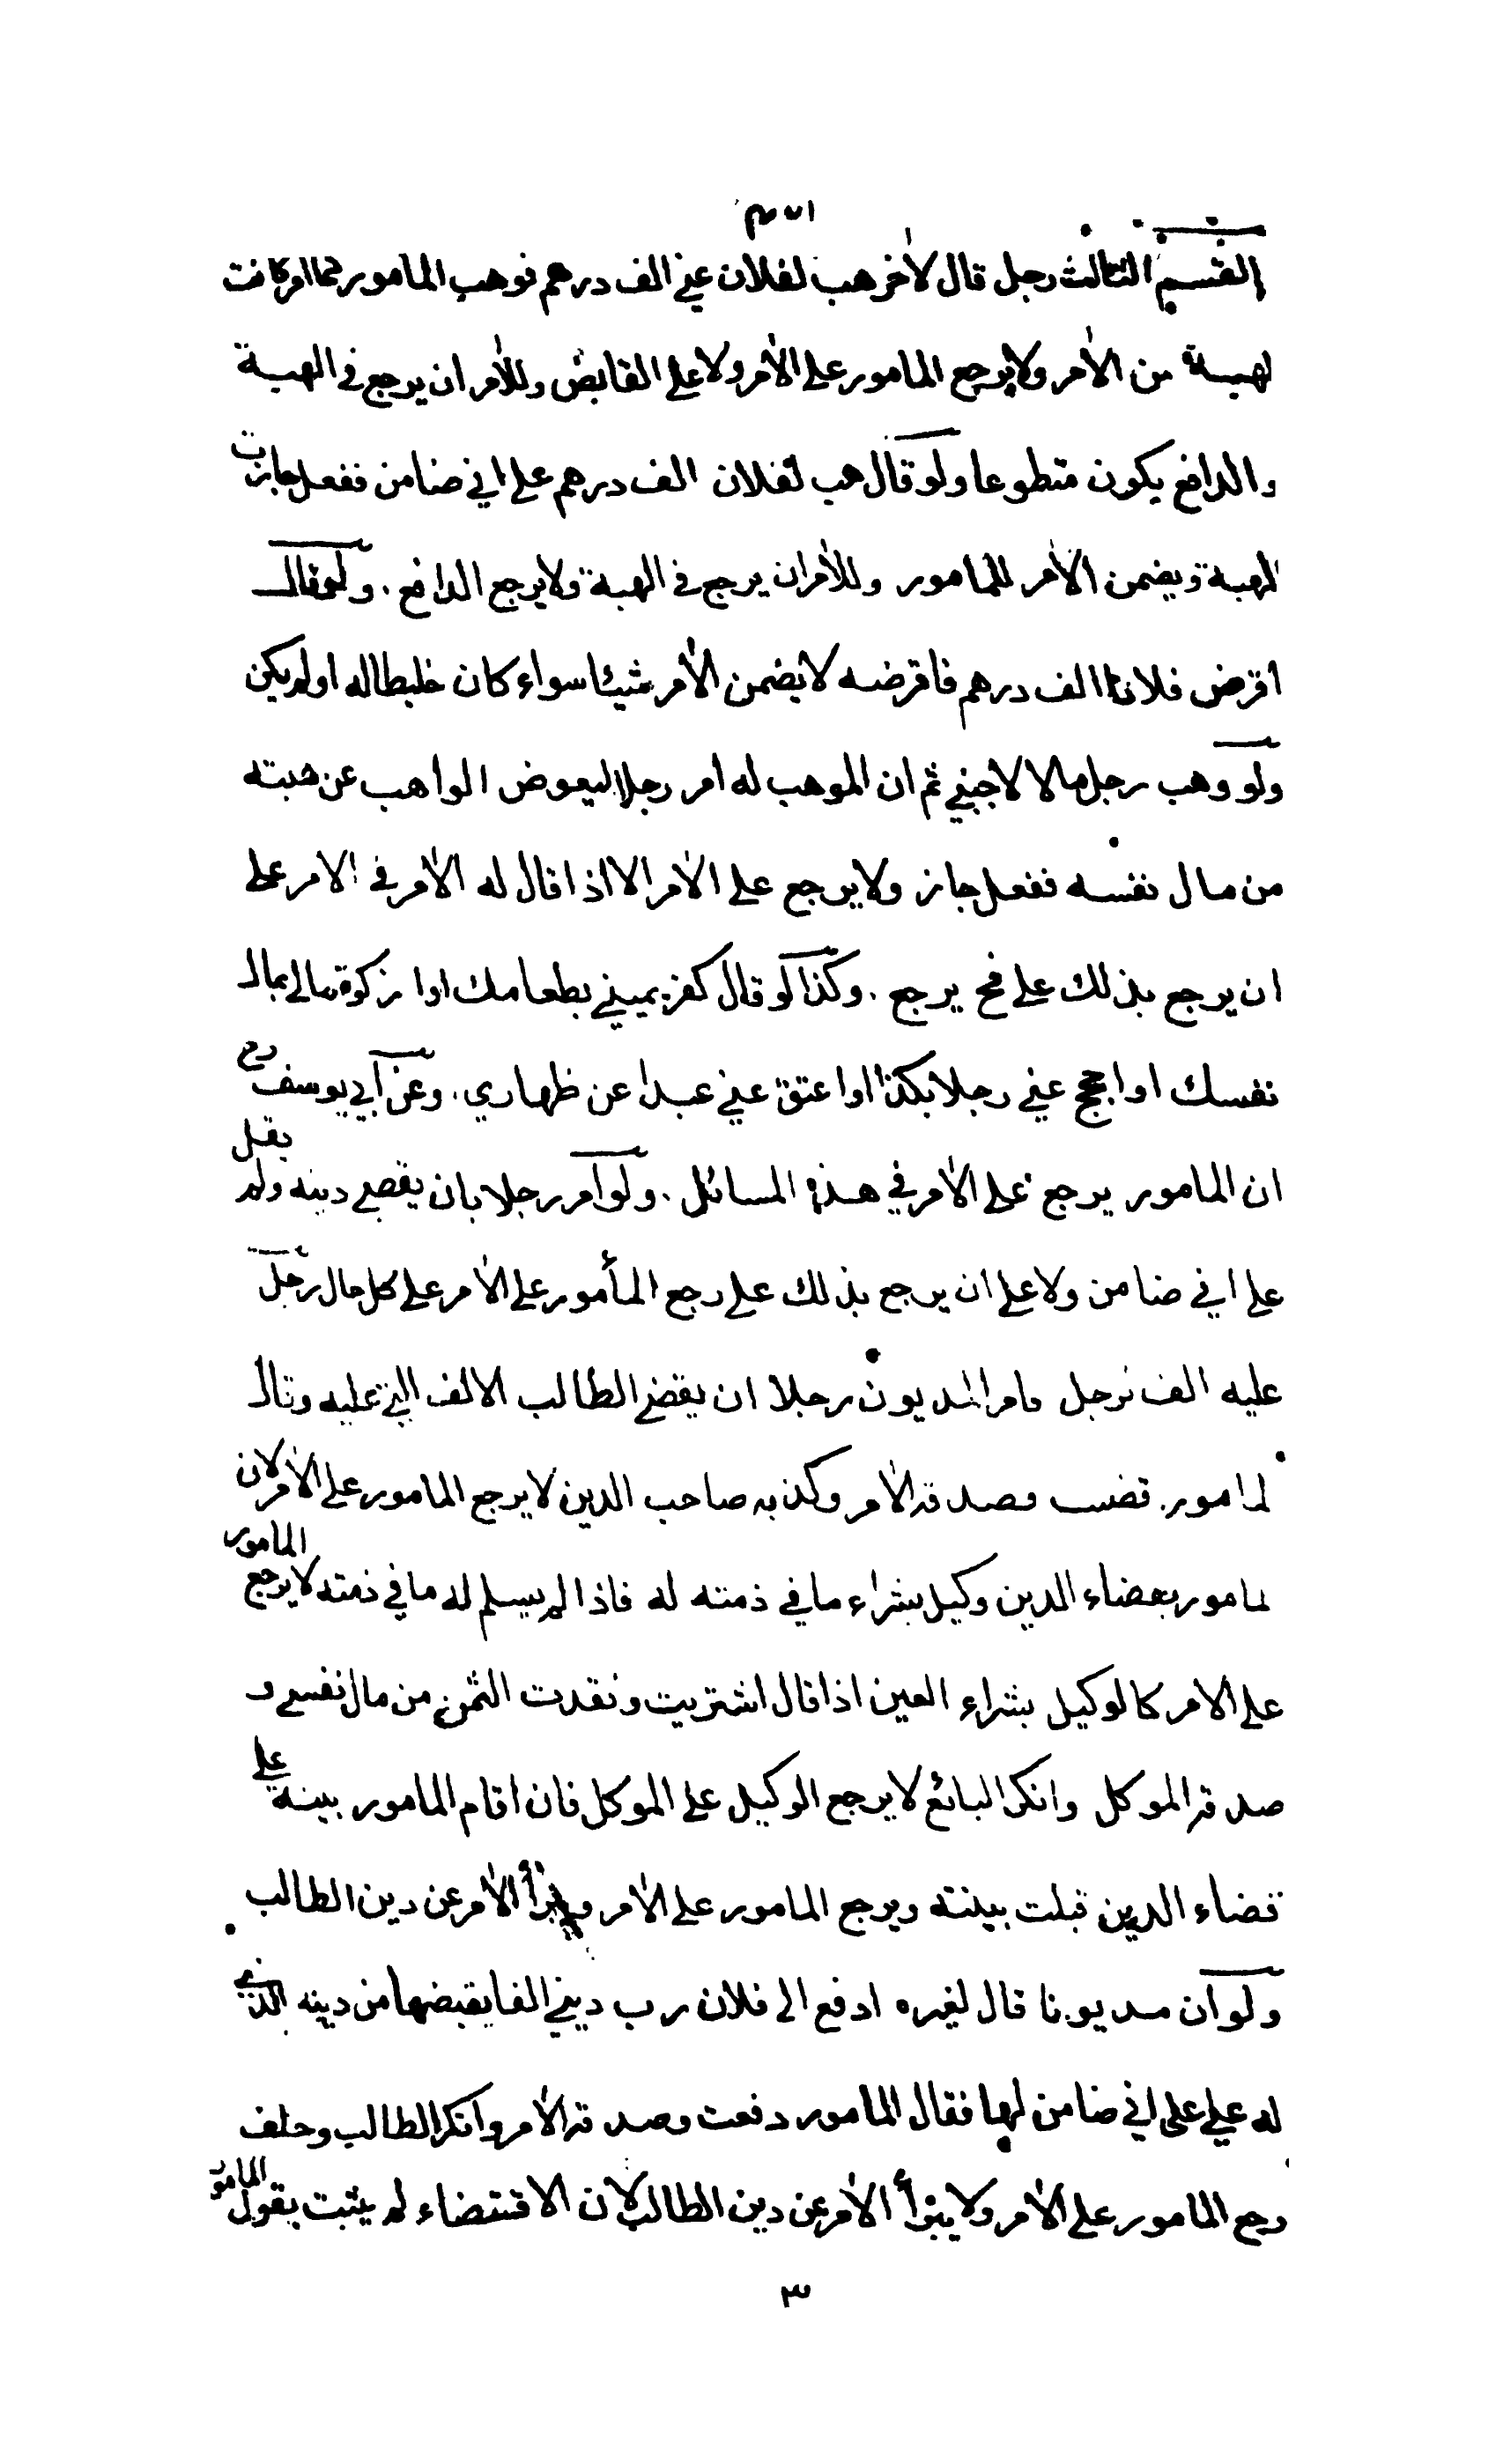 القسم الثالث رجل قال لآخر هب لفلان عني الف درهم فوهب المامور كما امر كانت
لهبة من الآمر ولا يرجع المامور على الآمر ولا على القابض وللآمر ان يرجع في الهبة
والدافع يكون متطوعا ولو قال هب لفلان الف درهم على اني ضامن ففعل جازت
الهبة ويضمن الآمر للمامور وللآمر ان يرجع في الهبة ولا يرجع الدافع . ولو قال
اقرض فلانا الف درهم فاقرضه لا يضمن الآمر شيئا سواء كان خليطا له او لم يكن
ولو وهب رجل مالا لاجنبي ثم ان الموهب له امر رجلا ليعوض الواهب عن هبته
من مال نفسه ففعل جاز ولا يرجع على الآمر الا اذا قال له الآمر في الامر على
ان يرجع بذلك علي فح يرجع . وكذا لو قال كفر يميني بطعامك او اد زكوة مالي بمال
نفسك او احجج عني رجلا بكذا او اعتق عني عبدا عن ظهاري . وعن ابي يوسف رح
ان المامور يرجع على الآمر في هذه المسائل . ولو امر رجلا بان يقضي دينه ولم يقل
على اني ضامن ولا على ان يرجع بذلك علي رجع المأمور على الآمر على كل حال رجل
عليه الف لرجل فامر المديون رجلا ان يقضي الطالب الالف التي عليه وقال
لمامور قضيت وصدقه الآمر وكذبه صاحب الدين لا يرجع المامور على الآمر لان
لمامور بقضاء الدين وكيل بشراء ما في ذمته له فاذا لم يسلم له ما في ذمته لا يرجع المامور
على الامر كالوكيل بشراء العين اذا قال اشتريت ونقدت الثمن من مال نفسي و
صدقه الموكل وانكر البائع لا يرجع الوكيل على الموكل فان اقام المامور بينة على
قضاء الدين قبلت بينته ويرجع المامور على الآمر ويبرأ الآمر عن دين الطالب
ولو ان مديونا قال لغيره ادفع الى فلان رب ديني الفا يقبضها من دينه الذي
له علي على اني ضامن لها فقال المامور دفعت وصدقه الآمر وانكر الطالب وحلف
رجع المامور على الآمر ولا يبرأ الآمر عن دين الطالب لان الاقتضاء لم يثبت بقول المامور
٣